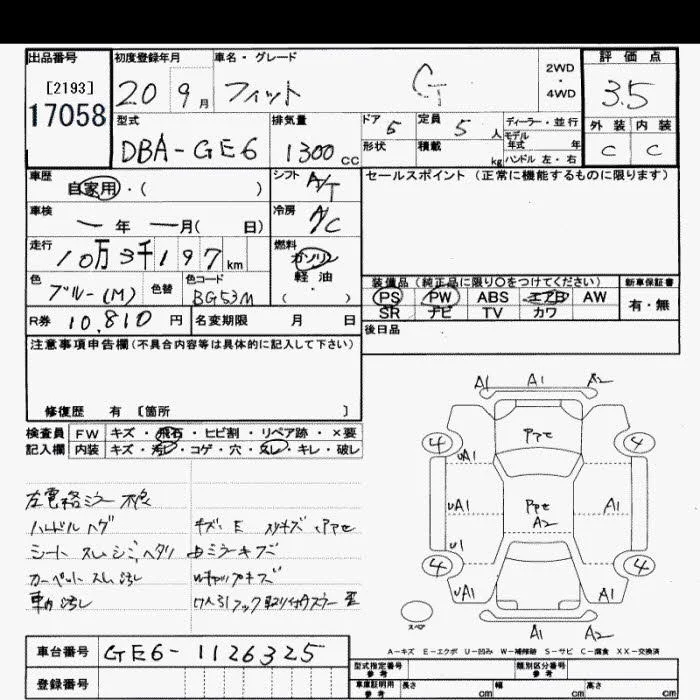 出品番号 初度登録年月 車名・グレード 2WD・4WD 評価点
[2193]
17058
20 9月 フィット G 3.5
型式 排気量 ドア 定員 ディーラー・並行 外装 内装
DBA-GE6 1300cc 5 5人 モデル年式 年 C C
形状 積載 kg ハンドル 左・右
車歴 シフト セールスポイント(正常に機能するものに限ります)
自家用・( ) A/T
車検 冷房
一年 一月( 日) A/C
走行 燃料
10万3千197km ガソリン
軽・油
( )
色 色替 色コード 装備品(純正品に限り○をつけてください) 新車保証書
ブルー(M) BG53M PS PW ABS エアB AW 有・無
SR ナビ TV カワ
R券 10,810円 名変期限 月 日 後日品
注意事項申告欄(不具合内容等は具体的に記入して下さい)
修復歴 有 [箇所 ]
検査員 FW キズ・飛石・ヒビ割・リペア跡・×要
記入欄 内装 キズ・汚レ・コゲ・穴・スレ・キレ・破レ
左電格ミラー不良
ハンドルハゲ
シート スレ シミ ヘタリ
カーペット スレ 汚レ
車内汚レ
A1 A1 A2
4 4
uA1
uA1 A2 A1
u1
4 4
uA1 A1
スペア
A1 A2
A-キズ E-エクボ U-凹み W-補修跡 S-サビ C-腐食 XX-交換済
車台番号 GE6-1126325
登録番号
型式指定番号 参考 類別区分番号 参考
車庫証明用 参考 長さ cm 幅 cm 高さ cm